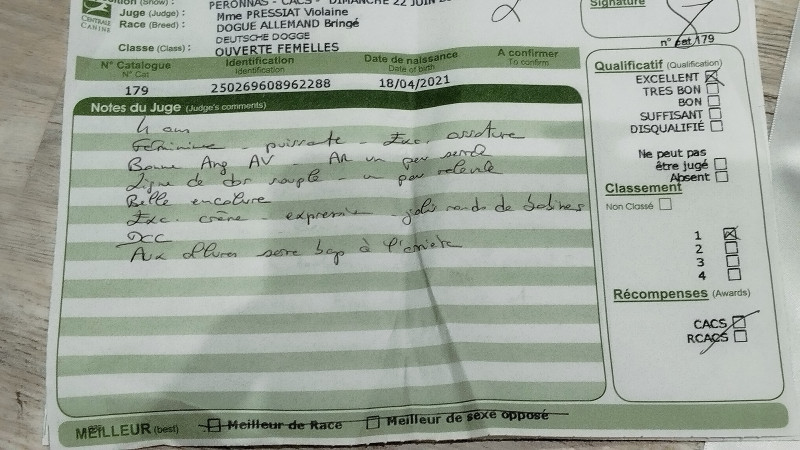 PERONNAS - CACS - DIMANCHE 22 JUIN
Juge (Judge) : Mme PRESSIAT Violaine
Race (Breed) : DOGUE ALLEMAND Bringé
DEUTSCHE DOGGE
Classe (Class) : OUVERTE FEMELLES
CENTRALE CANINE
Signature
n° cat 179
N° Catalogue Identification Date de naissance A confirmer
N° Cat Identification Date of birth To confirm
179 250269608962288 18/04/2021
Notes du Juge (Judge's comments)
4 ans
Féminine - puissante - Exc. ossature
Bonne Ang AV - AR un peu serré
Ligne de dos souple - un peu relevée
Belle encolure
Exc. crâne - expression - jolie de babines
DCC
Aux allures serre trop à l'arrière
Qualificatif (Qualification)
EXCELLENT
TRES BON
BON
SUFFISANT
DISQUALIFIÉ
Ne peut pas
être jugé
Absent
Classement
Non Classé
1
2
3
4
Récompenses (Awards)
CACS
RCACS
MEILLEUR (best) Meilleur de Race Meilleur de sexe opposé